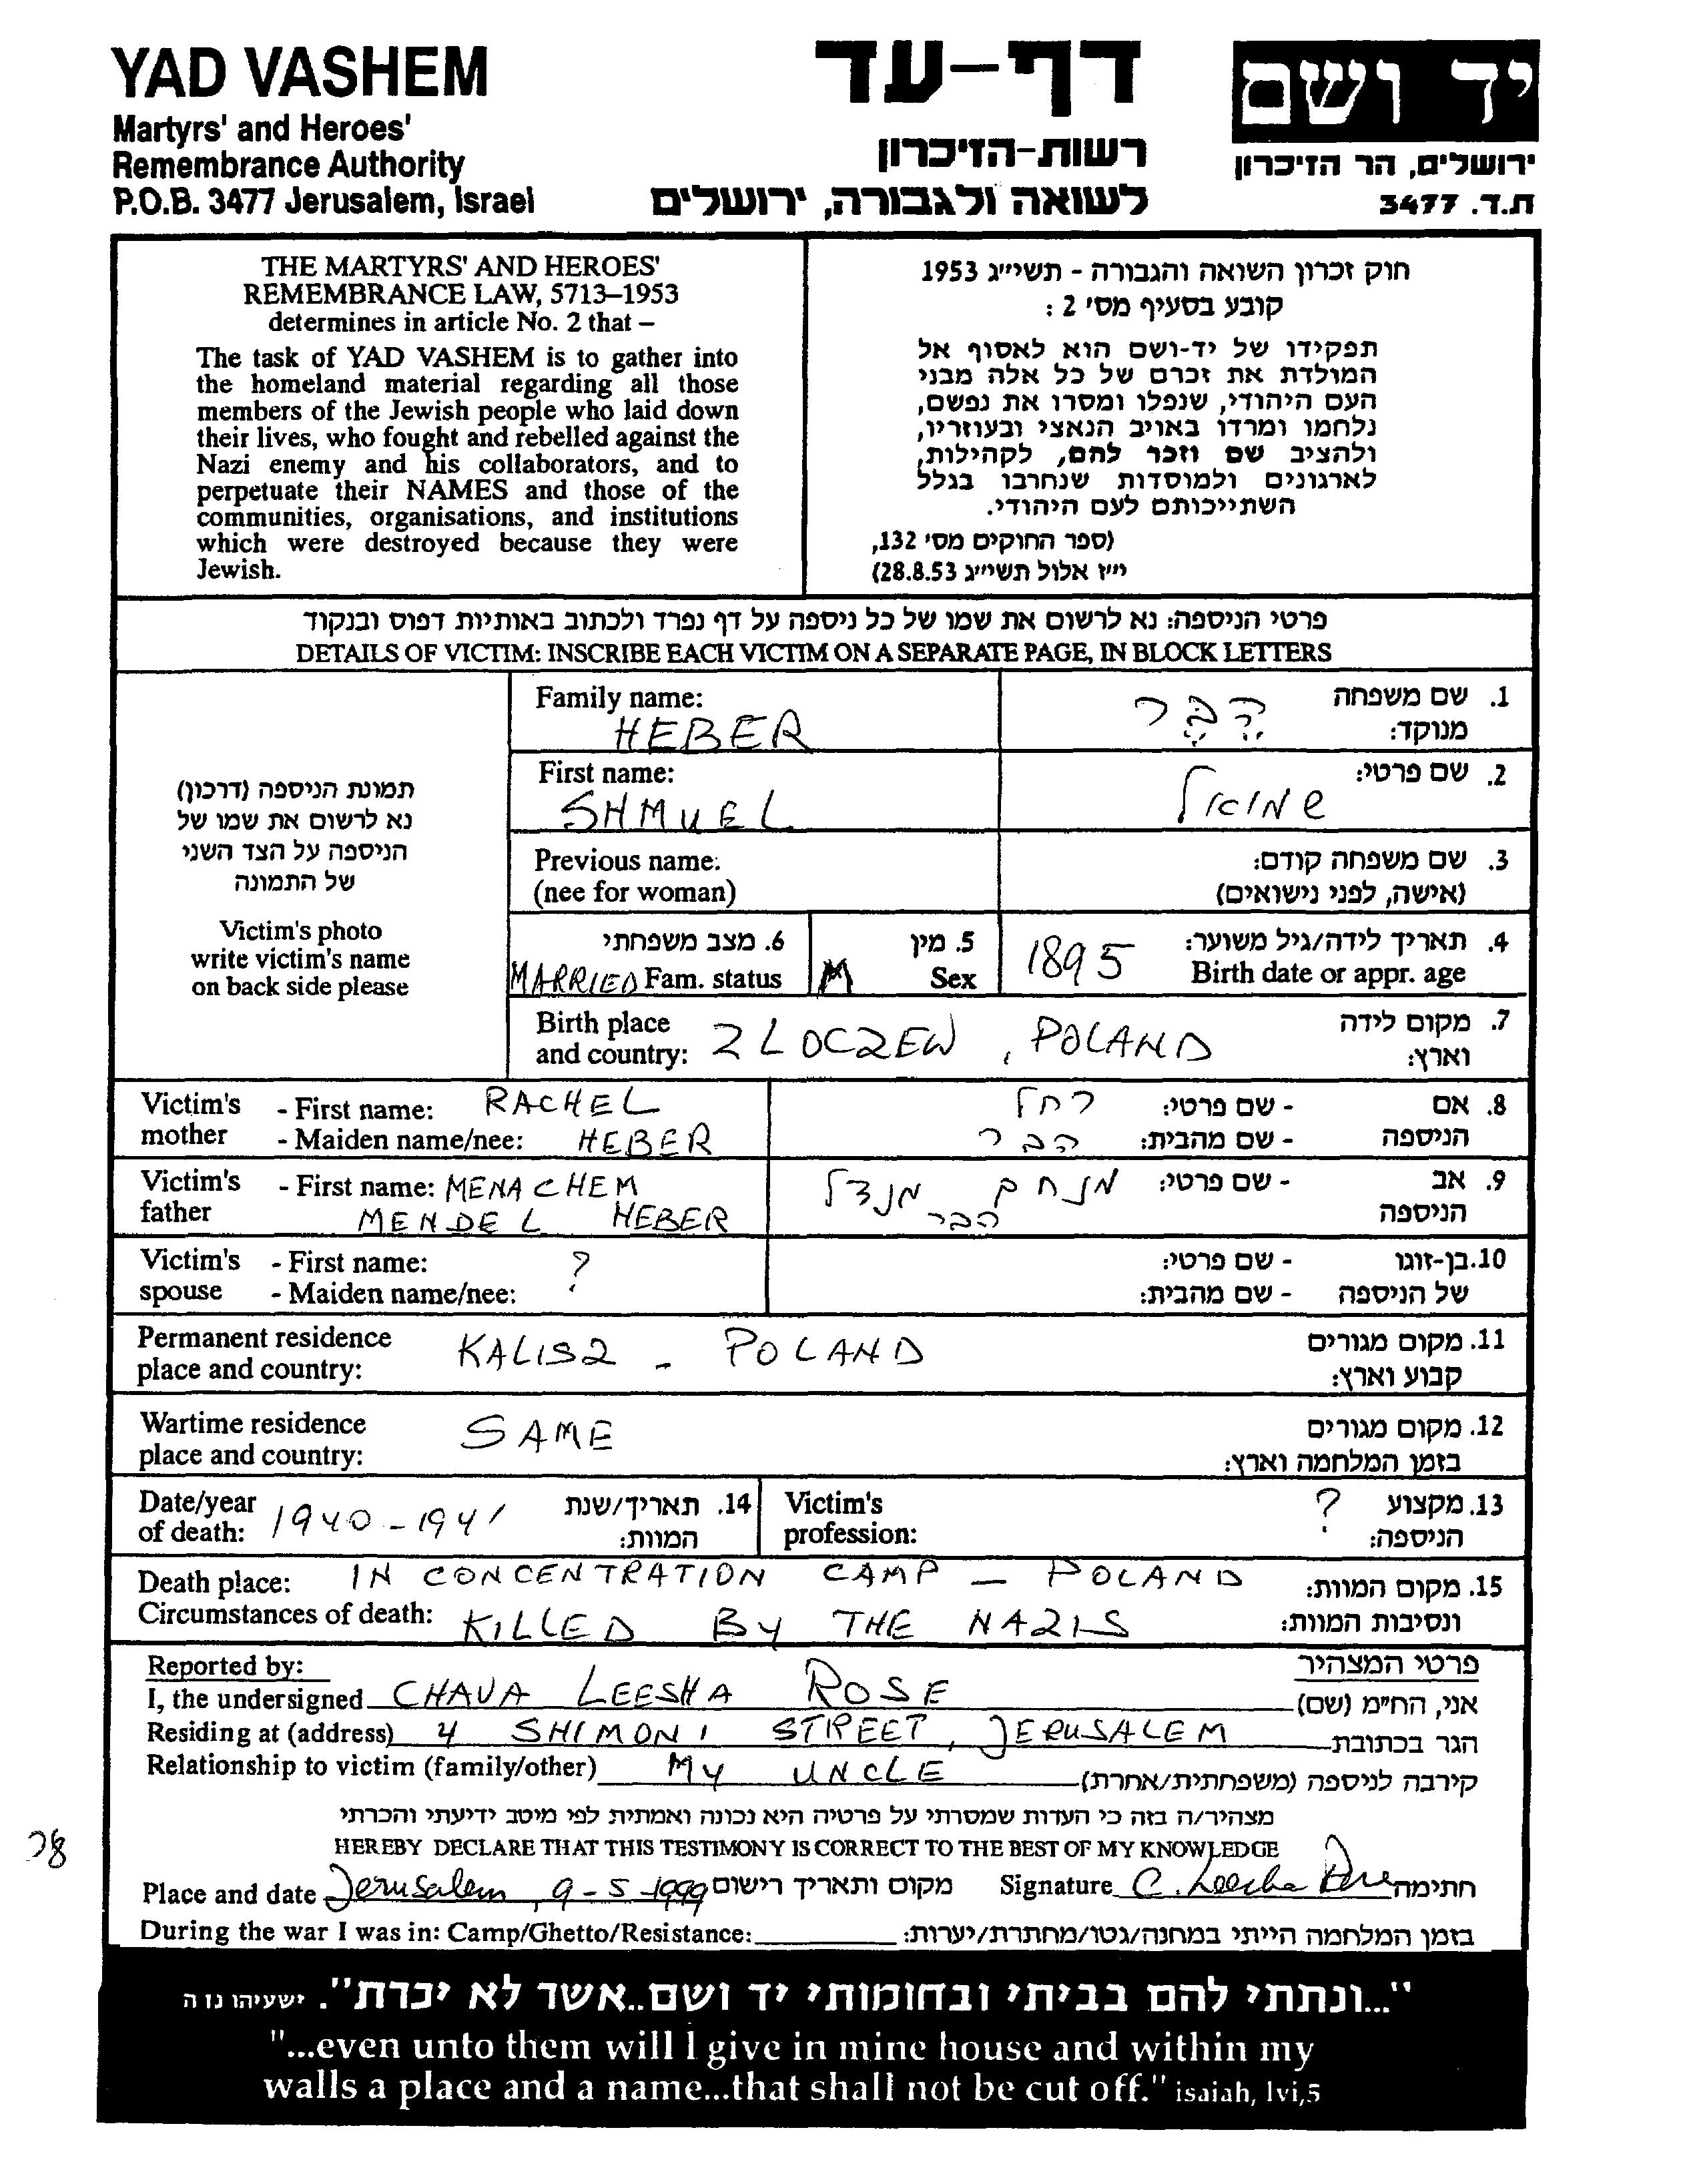 YAD VASHEM
Martyrs' and Heroes'
Remembrance Authority
P.O.B. 3477 Jerusalem, Israel
דף-עד
רשות-הזיכרון
לשואה ולגבורה, ירושלים
יד ושם
ירושלים, הר הזיכרון
ת.ד. 3477
THE MARTYRS' AND HEROES'
REMEMBRANCE LAW, 5713–1953
determines in article No. 2 that –
The task of YAD VASHEM is to gather into
the homeland material regarding all those
members of the Jewish people who laid down
their lives, who fought and rebelled against the
Nazi enemy and his collaborators, and to
perpetuate their NAMES and those of the
communities, organisations, and institutions
which were destroyed because they were
Jewish.
חוק זכרון השואה והגבורה - תשי״ג 1953
קובע בסעיף מס׳ 2 :
תפקידו של יד-ושם הוא לאסוף אל
המולדת את זכרם של כל אלה מבני
העם היהודי, שנפלו ומסרו את נפשם,
נלחמו ומרדו באויב הנאצי ובעוזריו,
ולהציב שם וזכר להם, לקהילות,
לארגונים ולמוסדות שנחרבו בגלל
השתייכותם לעם היהודי.
(ספר החוקים מס׳ 132,
י״ז אלול תשי״ג 28.8.53)
פרטי הניספה: נא לרשום את שמו של כל ניספה על דף נפרד ולכתוב באותיות דפוס ובנקוד
DETAILS OF VICTIM: INSCRIBE EACH VICTIM ON A SEPARATE PAGE, IN BLOCK LETTERS
תמונת הניספה (דרכון)
נא לרשום את שמו של
הניספה על הצד השני
של התמונה
Victim's photo
write victim's name
on back side please
Family name: הבר 1. שם משפחה
HEBER מנוקד:
First name: 2. שם פרטי:
SHMUEL שמואל
Previous name: 3. שם משפחה קודם:
(nee for woman) (אישה, לפני נישואים)
6. מצב משפחתי 5. מין 4. תאריך לידה/גיל משוער:
MARRIED Fam. status M Sex 1895 Birth date or appr. age
Birth place 7. מקום לידה
and country: ZLOCZEW, POLAND וארץ:
Victim's - First name: RACHEL רחל - שם פרטי: 8. אם
mother - Maiden name/nee: HEBER הבר - שם מהבית: הניספה
Victim's - First name: MENACHEM מנחם מנדל - שם פרטי: 9. אב
father MENDEL HEBER הבר הניספה
Victim's - First name: ? - שם פרטי: 10.בן-זוגו
spouse - Maiden name/nee: - שם מהבית: של הניספה
Permanent residence KALISZ - POLAND 11. מקום מגורים
place and country: קבוע וארץ:
Wartime residence SAME 12. מקום מגורים
place and country: בזמן המלחמה וארץ:
Date/year 1940-1941 14. תאריך/שנת Victim's ? 13. מקצוע
of death: המוות: profession: הניספה:
Death place: IN CONCENTRATION CAMP - POLAND 15. מקום המוות:
Circumstances of death: KILLED BY THE NAZIS ונסיבות המוות:
Reported by: פרטי המצהיר
I, the undersigned CHAVA LEESHA ROSE אני, הח״מ (שם)
Residing at (address) 4 SHIMONI STREET, JERUSALEM הגר בכתובת
Relationship to victim (family/other) MY UNCLE קירבה לניספה (משפחתית/אחרת)
מצהיר/ה בזה כי העדות שמסרתי על פרטיה היא נכונה ואמתית לפי מיטב ידיעתי והכרתי
HEREBY DECLARE THAT THIS TESTIMONY IS CORRECT TO THE BEST OF MY KNOWLEDGE
Place and date Jerusalem, 9-5-1999 מקום ותאריך רישום Signature C. Leesha Rose חתימה
During the war I was in: Camp/Ghetto/Resistance: בזמן המלחמה הייתי במחנה/גטו/מחתרת/יערות:
"...ונתתי להם בביתי ובחומותי יד ושם..אשר לא יכרת". ישעיהו נו ה
"...even unto them will I give in mine house and within my
walls a place and a name...that shall not be cut off." isaiah, lvi,5